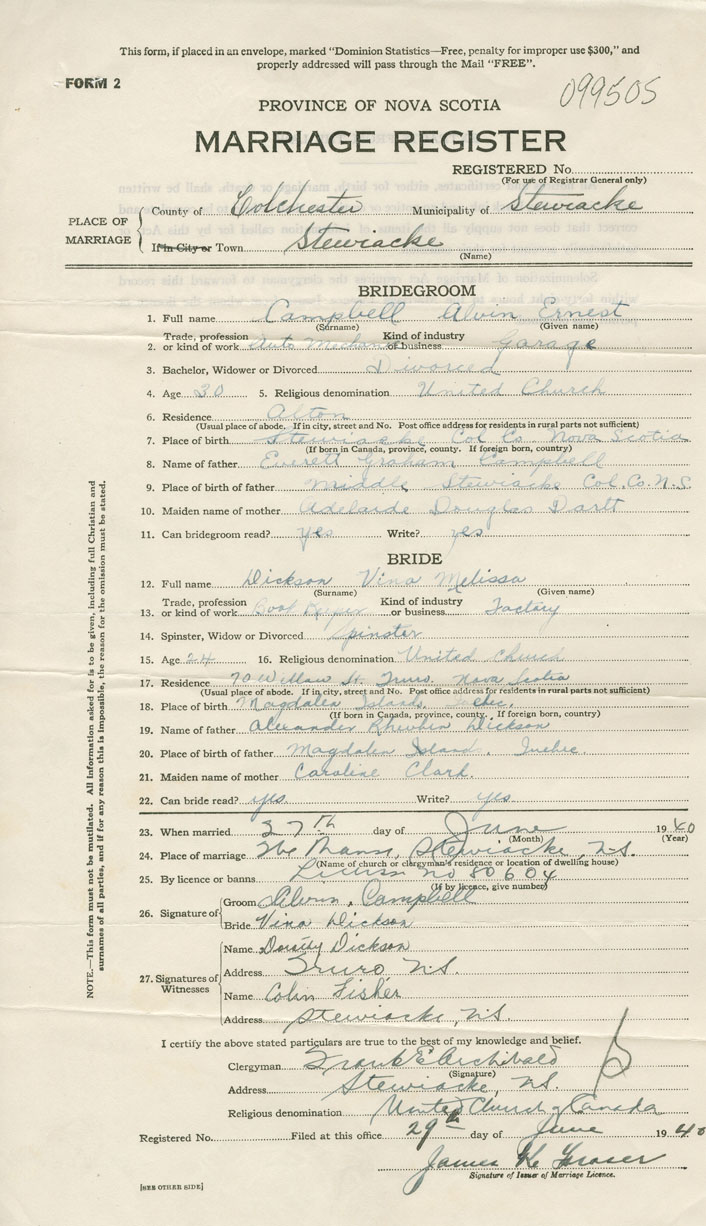 This form, if placed in an envelope, marked "Dominion Statistics—Free, penalty for improper use $300," and
properly addressed will pass through the Mail "FREE".
FORM 2
099505
PROVINCE OF NOVA SCOTIA
MARRIAGE REGISTER
REGISTERED No.
(For use of Registrar General only)
PLACE OF MARRIAGE
County of Colchester Municipality of Stewiacke
If in City or Town Stewiacke
(Name)
BRIDEGROOM
1. Full name Campbell Alvin Ernest
(Surname) (Given name)
2. Trade, profession or kind of work Auto Mechanic Kind of industry or business Garage
3. Bachelor, Widower or Divorced Divorced
4. Age 30 5. Religious denomination United Church
6. Residence Alton
(Usual place of abode. If in city, street and No. Post office address for residents in rural parts not sufficient)
7. Place of birth Stewiacke Col Co Nova Scotia
(If born in Canada, province, county. If foreign born, country)
8. Name of father Everett Graham Campbell
9. Place of birth of father Middle Stewiacke Col. Co. N.S.
10. Maiden name of mother Adelaide Douglas Dartt
11. Can bridegroom read? yes Write? yes
BRIDE
12. Full name Dickson Vina Melissa
(Surname) (Given name)
13. Trade, profession or kind of work Book Keeper Kind of industry or business Factory
14. Spinster, Widow or Divorced Spinster
15. Age 24 16. Religious denomination United Church
17. Residence 70 Willow St. Truro, Nova Scotia
(Usual place of abode. If in city, street and No. Post office address for residents in rural parts not sufficient)
18. Place of birth Magdalen Islands. Quebec.
(If born in Canada, province, county. If foreign born, country)
19. Name of father Alexander Dickson
20. Place of birth of father Magdalen Islands, Quebec.
21. Maiden name of mother Caroline Clark.
22. Can bride read? yes. Write? yes
23. When married 27th day of June 1940
(Month) (Year)
24. Place of marriage The Manse, Stewiacke, N.S.
(Name of church or clergyman's residence or location of dwelling house)
25. By licence or banns No 80604
(If by licence, give number)
26. Signature of
Groom Alvin Campbell
Bride Vina Dickson
27. Signatures of Witnesses
Name Dorothy Dickson
Address Truro N.S.
Name Colin Fisher
Address Stewiacke, N.S.
I certify the above stated particulars are true to the best of my knowledge and belief.
Clergyman Frank E Archibald
(Signature)
Address Stewiacke, N.S.
Religious denomination United Church of Canada
Registered No. Filed at this office 29th day of June 1940
James H Fraser
Signature of Issuer of Marriage Licence.
[SEE OTHER SIDE]
NOTE.—This form must not be mutilated. All information asked for is to be given, including full Christian and
surnames of all parties, and if for any reason this is impossible, the reason for the omission must be stated.